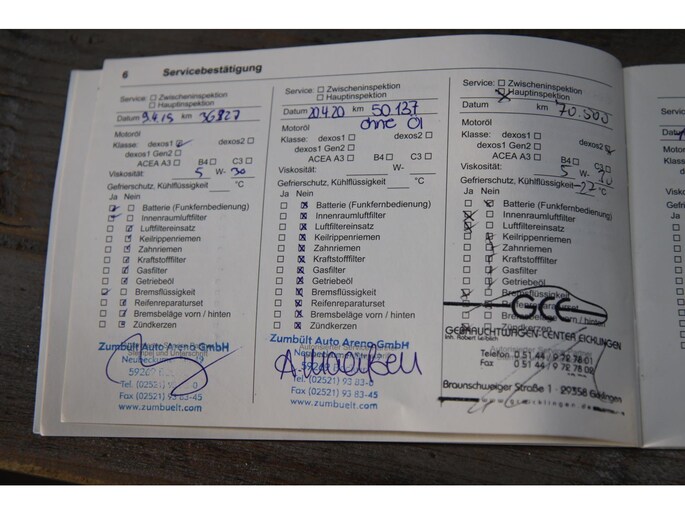 6 Servicebestätigung
Service: Zwischeninspektion
Hauptinspektion
Datum 9.4.19 km 36827
Motoröl
Klasse: dexos1 dexos2
dexos1 Gen2
ACEA A3 B4 C3
Viskosität: 5 W- 30
Gefrierschutz, Kühlflüssigkeit °C
Ja Nein
Batterie (Funkfernbedienung)
Innenraumluftfilter
Luftfiltereinsatz
Keilrippenriemen
Zahnriemen
Kraftstofffilter
Gasfilter
Getriebeöl
Bremsflüssigkeit
Reifenreparaturset
Bremsbeläge vorn / hinten
Zündkerzen
Zumbült Auto Arena GmbH
Stempel und Unterschrift
Neubeckumer
59269
Tel. (02521)
Fax (02521) 93 83-45
www.zumbuelt.com
Service: Zwischeninspektion
Hauptinspektion
Datum 20.4.20 km 50137
Motoröl ohne Öl
Klasse: dexos1 dexos2
dexos1 Gen2
ACEA A3 B4 C3
Viskosität: W-
Gefrierschutz, Kühlflüssigkeit °C
Ja Nein
Batterie (Funkfernbedienung)
Innenraumluftfilter
Luftfiltereinsatz
Keilrippenriemen
Zahnriemen
Kraftstofffilter
Gasfilter
Getriebeöl
Bremsflüssigkeit
Reifenreparaturset
Bremsbeläge vorn / hinten
Zündkerzen
Zumbült Auto Arena GmbH
59269
Tel. (02521) 93 83-0
Fax (02521) 93 83-45
www.zumbuelt.com
Service: Zwischeninspektion
Hauptinspektion
Datum km 70.500
Motoröl
Klasse: dexos1 dexos2
dexos1 Gen2
ACEA A3 B4 C3
Viskosität: 5 W-
Gefrierschutz, Kühlflüssigkeit -22 °C
Ja Nein
Batterie (Funkfernbedienung)
Innenraumluftfilter
Luftfiltereinsatz
Keilrippenriemen
Zahnriemen
Kraftstofffilter
Gasfilter
Getriebeöl
Bremsflüssigkeit
Reifenreparaturset
Bremsbeläge vorn / hinten
Zündkerzen
GCE
GEBRAUCHTWAGEN-CENTER EICKLINGEN
Inh. Robert Leiblich
Telefon 0 51 44 / 9 72 78 01
Fax 0 51 44 / 9 72 78 02
Braunschweiger Straße 1 · 29358 Eicklingen